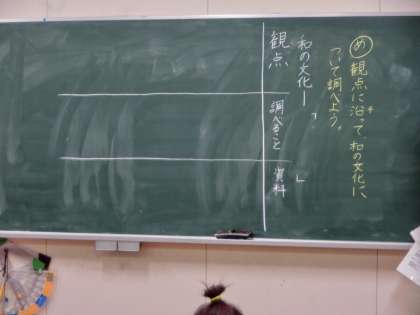 め 観点に沿って和の文化に
ついて調べよう。
和の文化ー「　　」
観点
調べること
資料